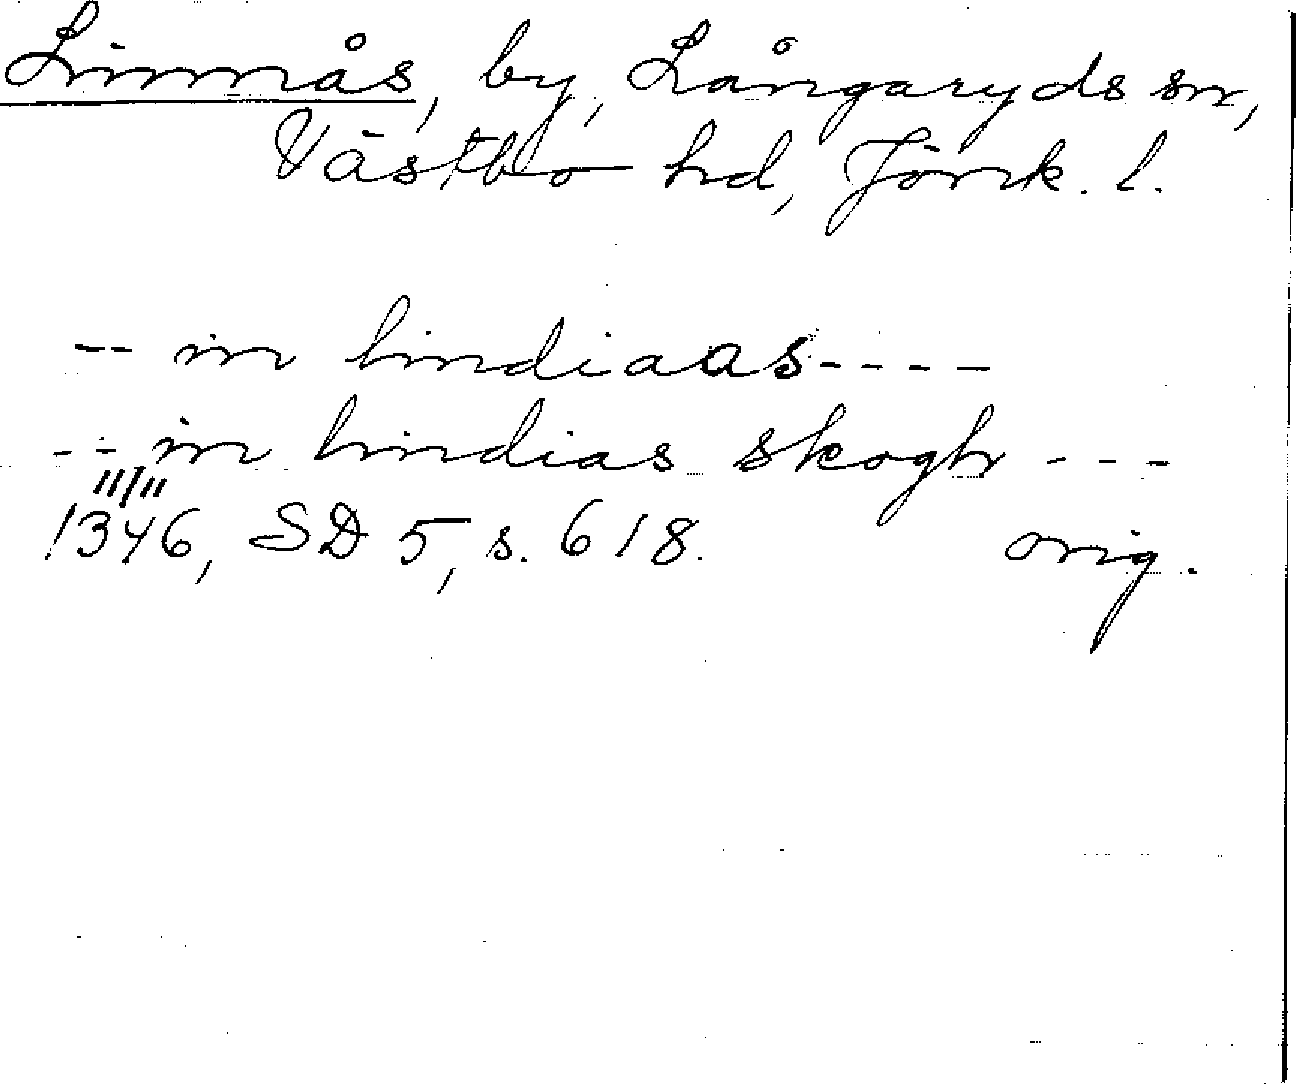 Linnås, by, Långaryds sn,
Västbo hd, Jönk. l.
-- in lindiaas ----
-- in lindias skogh ---
11/11
1346, SD 5, s. 618. orig.